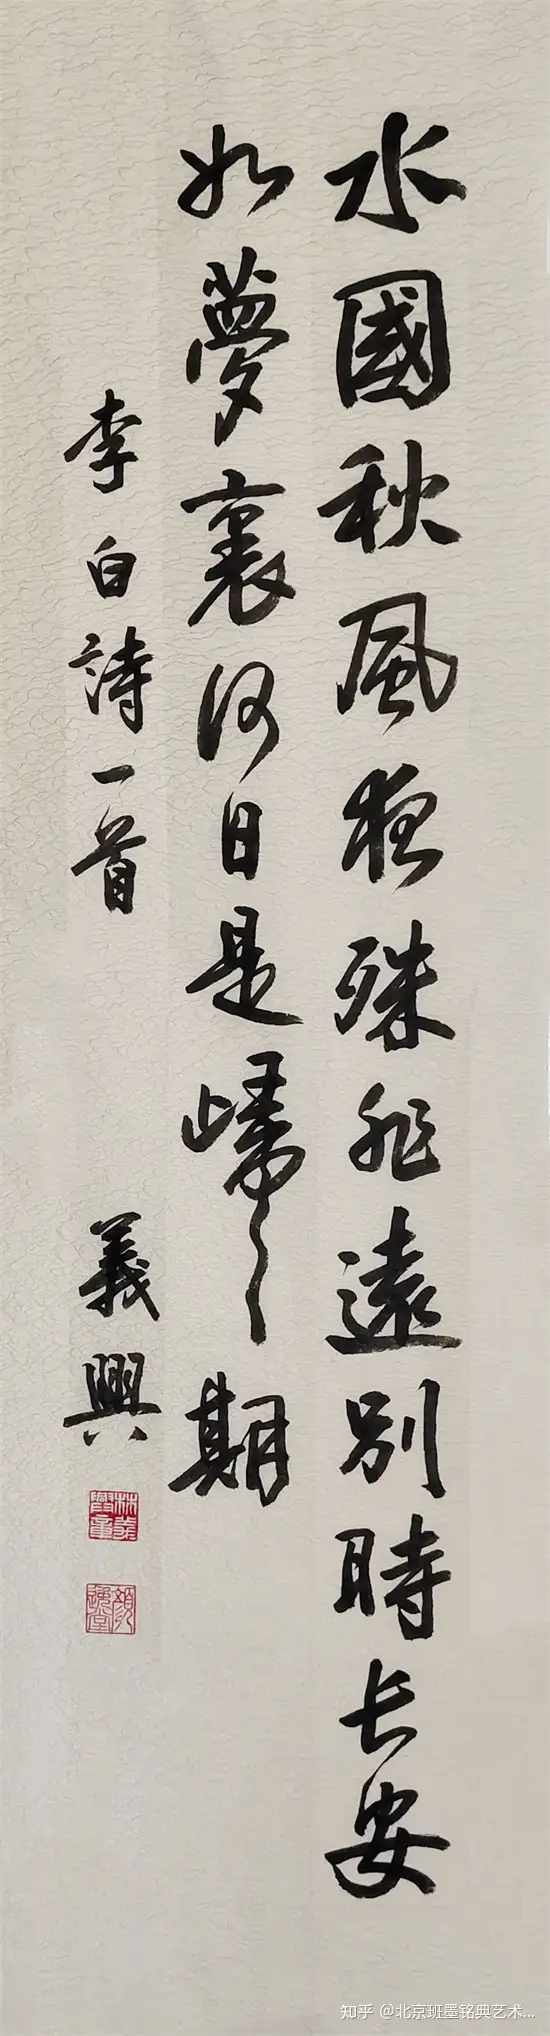 水國秋風夜殊非遠別時長安
如夢裏何日是歸期
李白詩一首
義興
知乎 @北京班墨铭典艺术...